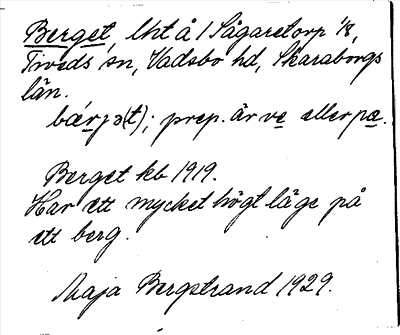 Berget lht å 1 Sågaretorp 1/8,
Tiveds sn, Vadsbo hd, Skaraborgs
län.
bærjə(t); prep. är ve eller pa.
Berget kb 1919.
Har ett mycket högt läge på
ett berg.
Maja Bergstrand 1929.